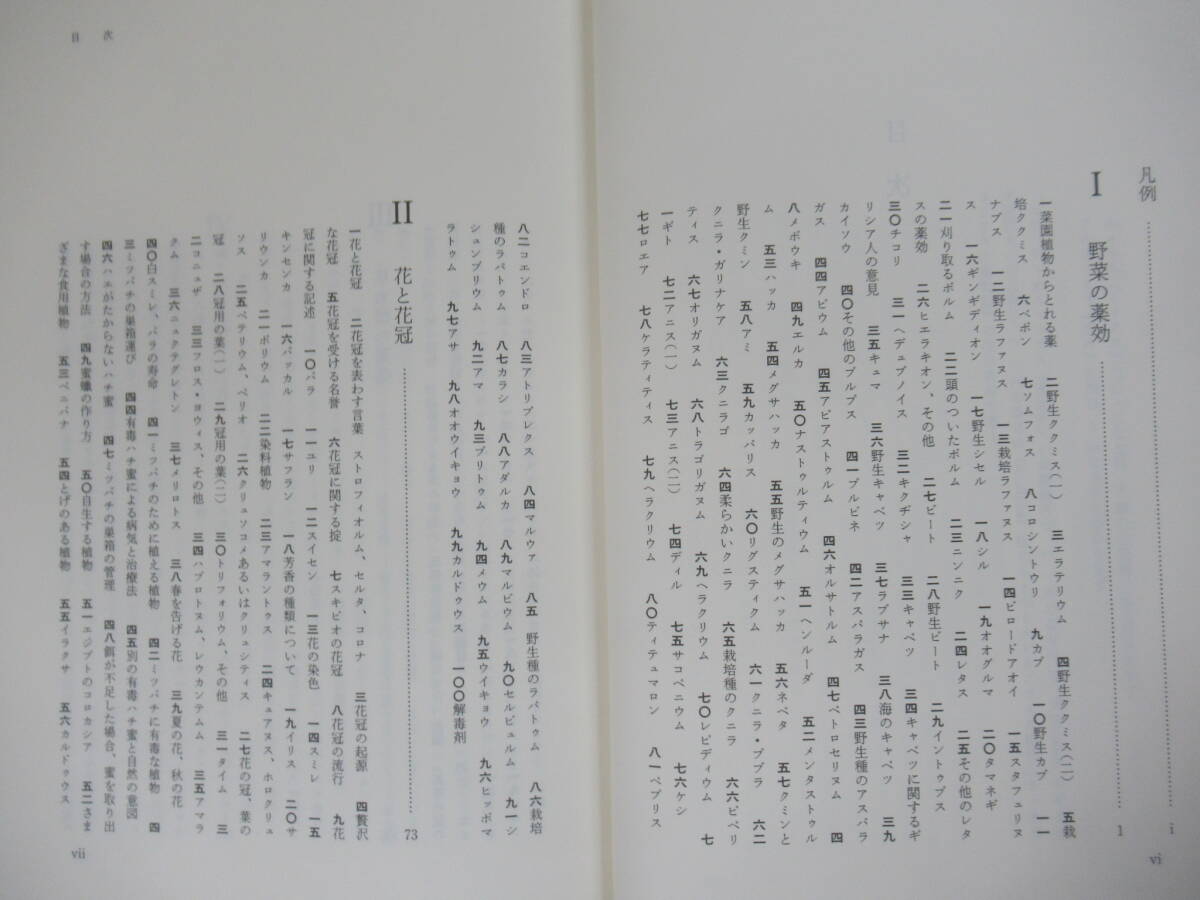 凡例 i
I 野菜の薬効 1
一菜園植物からとれる薬 二野生ククミス(一) 三エラテリウム 四野生ククミス(二) 五栽
培ククミス 六ペポン 七ソムフォス 八コロシントウリ 九カブ 一〇野生カブ 一一
ナプス 一二野生ラファヌス 一三栽培ラファヌス 一四ビロードアオイ 一五スタフェリヌ
ス 一六ギンギディオン 一七野生シセル 一八シル 一九オオグルマ 二〇タマネギ
二一刈り取るポルム 二二頭のついたポルム 二三ニンニク 二四レタス 二五その他のレタ
スの薬効 二六ヒエラキオン、その他 二七ビート 二八野生ビート 二九イントゥブス
三〇チコリ 三一ヘデュプノイス 三二キクヂシャ 三三キャベツ 三四キャベツに関するギ
リシア人の意見 三五キュマ 三六野生キャベツ 三七ラプサナ 三八海のキャベツ 三九
カイソウ 四〇その他のブルブス 四一ブルビネ 四二アスパラガス 四三野生種のアスパラ
ガス 四四アピウム 四五アピアストゥルム 四六オルサトルム 四七ペトロセリヌム 四
八メボウキ 四九エルカ 五〇ナストゥルティウム 五一ヘンルーダ 五二メンタストゥル
ム 五三ハッカ 五四メグサハッカ 五五野生のメグサハッカ 五六ネペタ 五七クミンと
野生クミン 五八アミ 五九カッパリス 六〇リグスティクム 六一クニラ・ブブラ 六二
クニラ・ガリナケア 六三クニラゴ 六四柔らかいクニラ 六五栽培種のクニラ 六六ピペリ
ティス 六七オリガヌム 六八トラゴリガヌム 六九ヘラクリウム 七〇レピディウム 七
一ギト 七二アニス(一) 七三アニス(二) 七四ディル 七五サコペニウム 七六ケシ
七七ロエア 七八ケラティティス 七九ヘラクリウム 八〇ティテュマロン 八一ペプリス
vi
目次
八二コエンドロ 八三アトリプレクス 八四マルウァ 八五野生種のラパトゥム 八六栽培
種のラパトゥム 八七カラシ 八八アダルカ 八九マルビウム 九〇セルピュルム 九一シ
シュンブリウム 九二アマ 九三ブリトゥム 九四メウム 九五ウイキョウ 九六ヒッポマ
ラトゥム 九七アサ 九八オオウイキョウ 九九カルドゥウス 一〇〇解毒剤
II 花と花冠 73
一花と花冠 二花冠を表わす言葉 ストロフィオルム、セルタ、コロナ 三花冠の起源 四贅沢
な花冠 五花冠を受ける名誉 六花冠に関する掟 七スキピオの花冠 八花冠の流行 九花
冠に関する記述 一〇バラ 一一ユリ 一二スイセン 一三花の染色 一四スミレ 一五
キンセンカ 一六バッカル 一七サフラン 一八芳香の種類について 一九イリス 二〇サ
リウンカ 二一ポリウム 二二染料植物 二三アマラントゥス 二四キュアヌス、ホロクリュ
ソス 二五ペテリウム、ペリオ 二六クリュソコメあるいはクリュシティス 二七花の冠、葉の
冠 二八冠用の葉(一) 二九冠用の葉(二) 三〇トリフォリウム、その他 三一タイム 三
二コニュザ 三三フロス・ヨウィス、その他 三四ハブロトヌム、レウカンテムム 三五アマラ
クム 三六ニュクテグレトン 三七メリロトス 三八春を告げる花 三九夏の花、秋の花
四〇白スミレ、バラの寿命 四一ミツバチのために植える植物 四二ミツバチに有毒な植物 四
三ミツバチの巣箱運び 四四有毒ハチ蜜による病気と治療法 四五別の有毒ハチ蜜と自然の意図
四六ハエがたからないハチ蜜 四七ミツバチの巣箱の管理 四八餌が不足した場合、蜜を取り出
す場合の方法 四九蜜蠟の作り方 五〇自生する植物 五一エジプトのコロカシア 五二さま
ざまな食用植物 五三ベニバナ 五四とげのある植物 五五イラクサ 五六カルドゥウス
vii